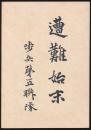 遭難始末
歩兵第五聯隊